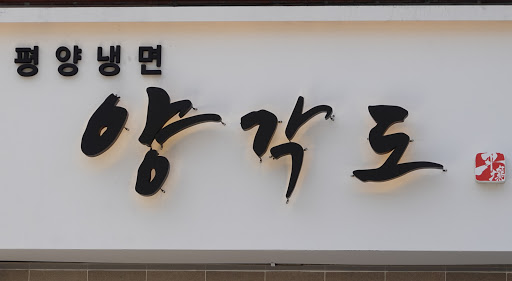 평양냉면
양각도